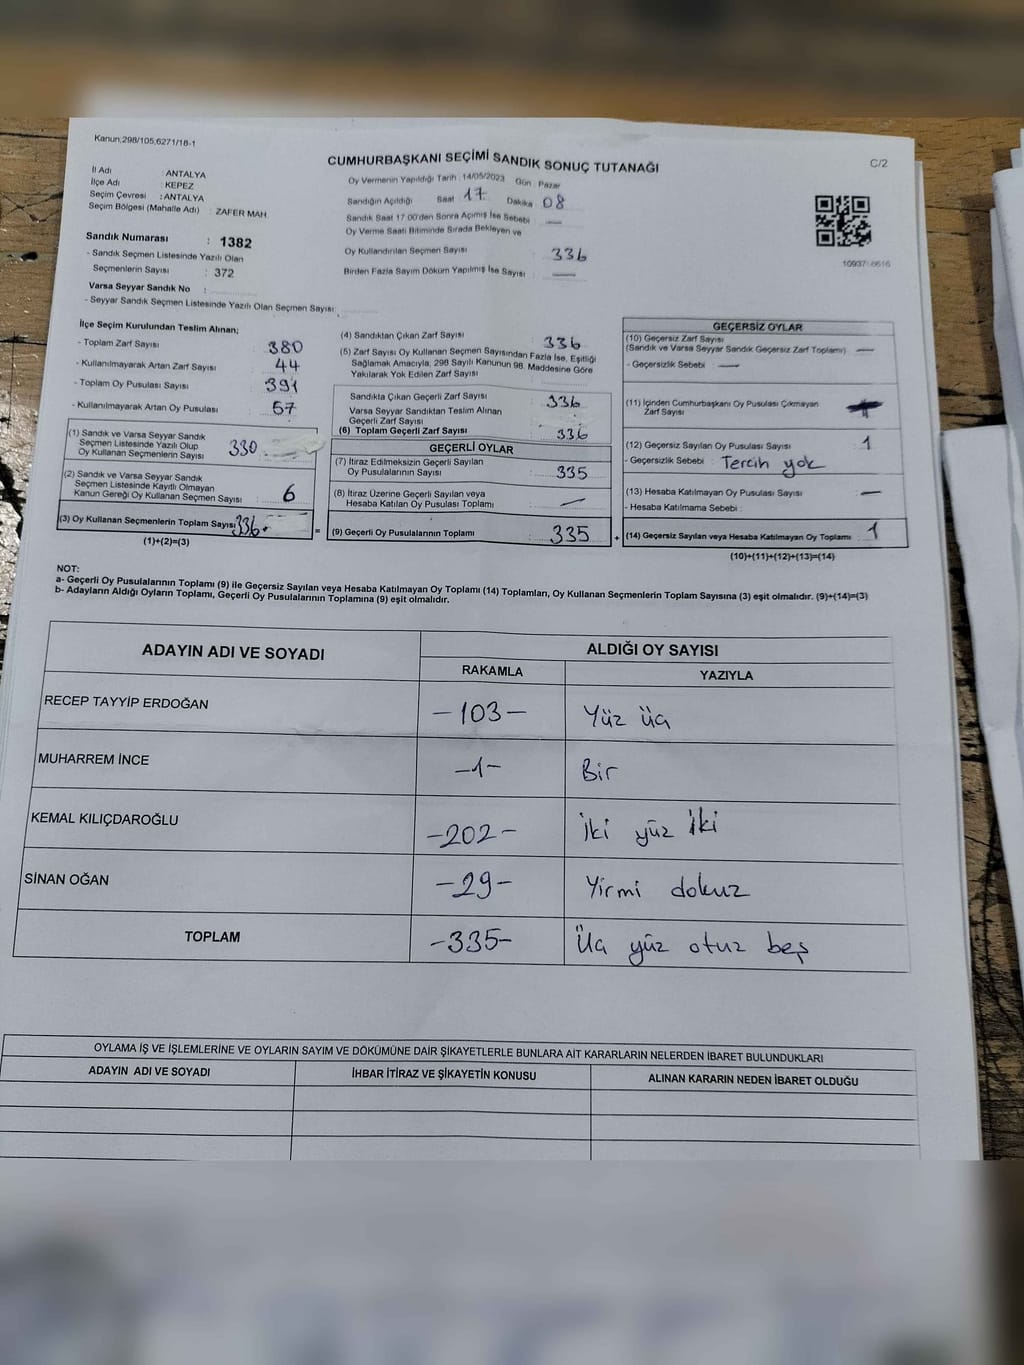 Kanun;298/105,6271/18-1
CUMHURBAŞKANI SEÇİMİ SANDIK SONUÇ TUTANAĞI
C/2
İl Adı : ANTALYA
İlçe Adı : KEPEZ
Seçim Çevresi : ANTALYA
Seçim Bölgesi (Mahalle Adı) : ZAFER MAH.
Sandık Numarası : 1382
- Sandık Seçmen Listesinde Yazılı Olan
Seçmenlerin Sayısı : 372
Varsa Seyyar Sandık No :
- Seyyar Sandık Seçmen Listesinde Yazılı Olan Seçmen Sayısı:
Oy Vermenin Yapıldığı Tarih : 14/05/2023 Gün : Pazar
Sandığın Açıldığı Saat 17 Dakika 08
Sandık Saat 17.00'den Sonra Açılmış İse Sebebi : —
Oy Verme Saati Bitiminde Sırada Bekleyen ve
Oy Kullandırılan Seçmen Sayısı 336
Birden Fazla Sayım Döküm Yapılmış İse Sayısı : —
İlçe Seçim Kurulundan Teslim Alınan;
- Toplam Zarf Sayısı : 380
- Kullanılmayarak Artan Zarf Sayısı : 44
- Toplam Oy Pusulası Sayısı : 391
- Kullanılmayarak Artan Oy Pusulası : 57
(1) Sandık ve Varsa Seyyar Sandık
Seçmen Listesinde Yazılı Olup
Oy Kullanan Seçmenlerin Sayısı 330
(2) Sandık ve Varsa Seyyar Sandık
Seçmen Listesinde Kayıtlı Olmayan
Kanun Gereği Oy Kullanan Seçmen Sayısı 6
(3) Oy Kullanan Seçmenlerin Toplam Sayısı 336
(1)+(2)=(3)
(4) Sandıktan Çıkan Zarf Sayısı : 336
(5) Zarf Sayısı Oy Kullanan Seçmen Sayısından Fazla İse, Eşitliği
Sağlamak Amacıyla, 298 Sayılı Kanunun 98. Maddesine Göre
Yakılarak Yok Edilen Zarf Sayısı
Sandıkta Çıkan Geçerli Zarf Sayısı : 336
Varsa Seyyar Sandıktan Teslim Alınan
Geçerli Zarf Sayısı
(6) Toplam Geçerli Zarf Sayısı : 336
GEÇERLİ OYLAR
(7) İtiraz Edilmeksizin Geçerli Sayılan
Oy Pusulalarının Sayısı : 335
(8) İtiraz Üzerine Geçerli Sayılan veya
Hesaba Katılan Oy Pusulası Toplamı : —
(9) Geçerli Oy Pusulalarının Toplamı 335
GEÇERSİZ OYLAR
(10) Geçersiz Zarf Sayısı
(Sandık ve Varsa Seyyar Sandık Geçersiz Zarf Toplamı) —
- Geçersizlik Sebebi : —
(11) İçinden Cumhurbaşkanı Oy Pusulası Çıkmayan
Zarf Sayısı
(12) Geçersiz Sayılan Oy Pusulası Sayısı : 1
- Geçersizlik Sebebi : Tercih yok
(13) Hesaba Katılmayan Oy Pusulası Sayısı : —
- Hesaba Katılmama Sebebi :
(14) Geçersiz Sayılan veya Hesaba Katılmayan Oy Toplamı : 1
(10)+(11)+(12)+(13)=(14)
NOT:
a- Geçerli Oy Pusulalarının Toplamı (9) ile Geçersiz Sayılan veya Hesaba Katılmayan Oy Toplamı (14) Toplamları, Oy Kullanan Seçmenlerin Toplam Sayısına (3) eşit olmalıdır. (9)+(14)=(3)
b- Adayların Aldığı Oyların Toplamı, Geçerli Oy Pusulalarının Toplamına (9) eşit olmalıdır.
ADAYIN ADI VE SOYADI
ALDIĞI OY SAYISI
RAKAMLA YAZIYLA
RECEP TAYYİP ERDOĞAN -103- Yüz üç
MUHARREM İNCE -1- Bir
KEMAL KILIÇDAROĞLU -202- İki yüz İki
SİNAN OĞAN -29- Yirmi dokuz
TOPLAM -335- Üç yüz otuz beş
OYLAMA İŞ VE İŞLEMLERİNE VE OYLARIN SAYIM VE DÖKÜMÜNE DAİR ŞİKAYETLERLE BUNLARA AİT KARARLARIN NELERDEN İBARET BULUNDUKLARI
ADAYIN ADI VE SOYADI İHBAR İTİRAZ VE ŞİKAYETİN KONUSU ALINAN KARARIN NEDEN İBARET OLDUĞU